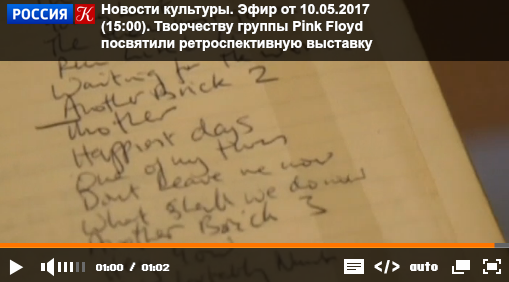 РОССИЯ К
Новости культуры. Эфир от 10.05.2017
(15:00). Творчеству группы Pink Floyd
посвятили ретроспективную выставку
The
Run
Waiting for the
Another Brick 2
Mother
Happiest days
One of my turns
Dont Leave me now
What shall we do now
Another Brick 3
01:00 / 01:02
</> auto